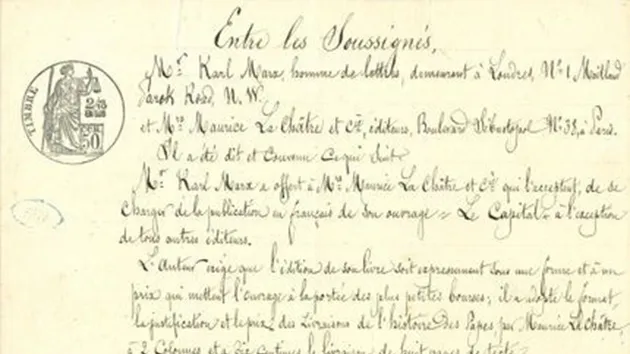 Entre les Soussignés,
Mr. Karl Marx, homme de lettres, demeurant à Londres, No. 1, Maitland
Park Road, N. W.
et Mrs. Maurice La Châtre et Cie, éditeurs, Boulevard Sébastopol No. 38, à Paris.
Il a été dit et convenu ce qui suit.
Mr. Karl Marx a offert à Mr. Maurice La Châtre et Cie qui l'acceptent, de se
charger de la publication en français de son ouvrage "Le Capital" à l'exception
de tous autres éditeurs.
L'Auteur exige que l'édition de son livre soit expressement sous une forme et à un
prix qui mettent l'ouvrage à la portée des plus petites bourses; il a adopté le format,
la justification et le prix des livraisons de l'histoire des Papes par Maurice La Châtre,
à 2 Colonnes et à Dix centimes la livraison de huit pages de texte.
TIMBRE
50